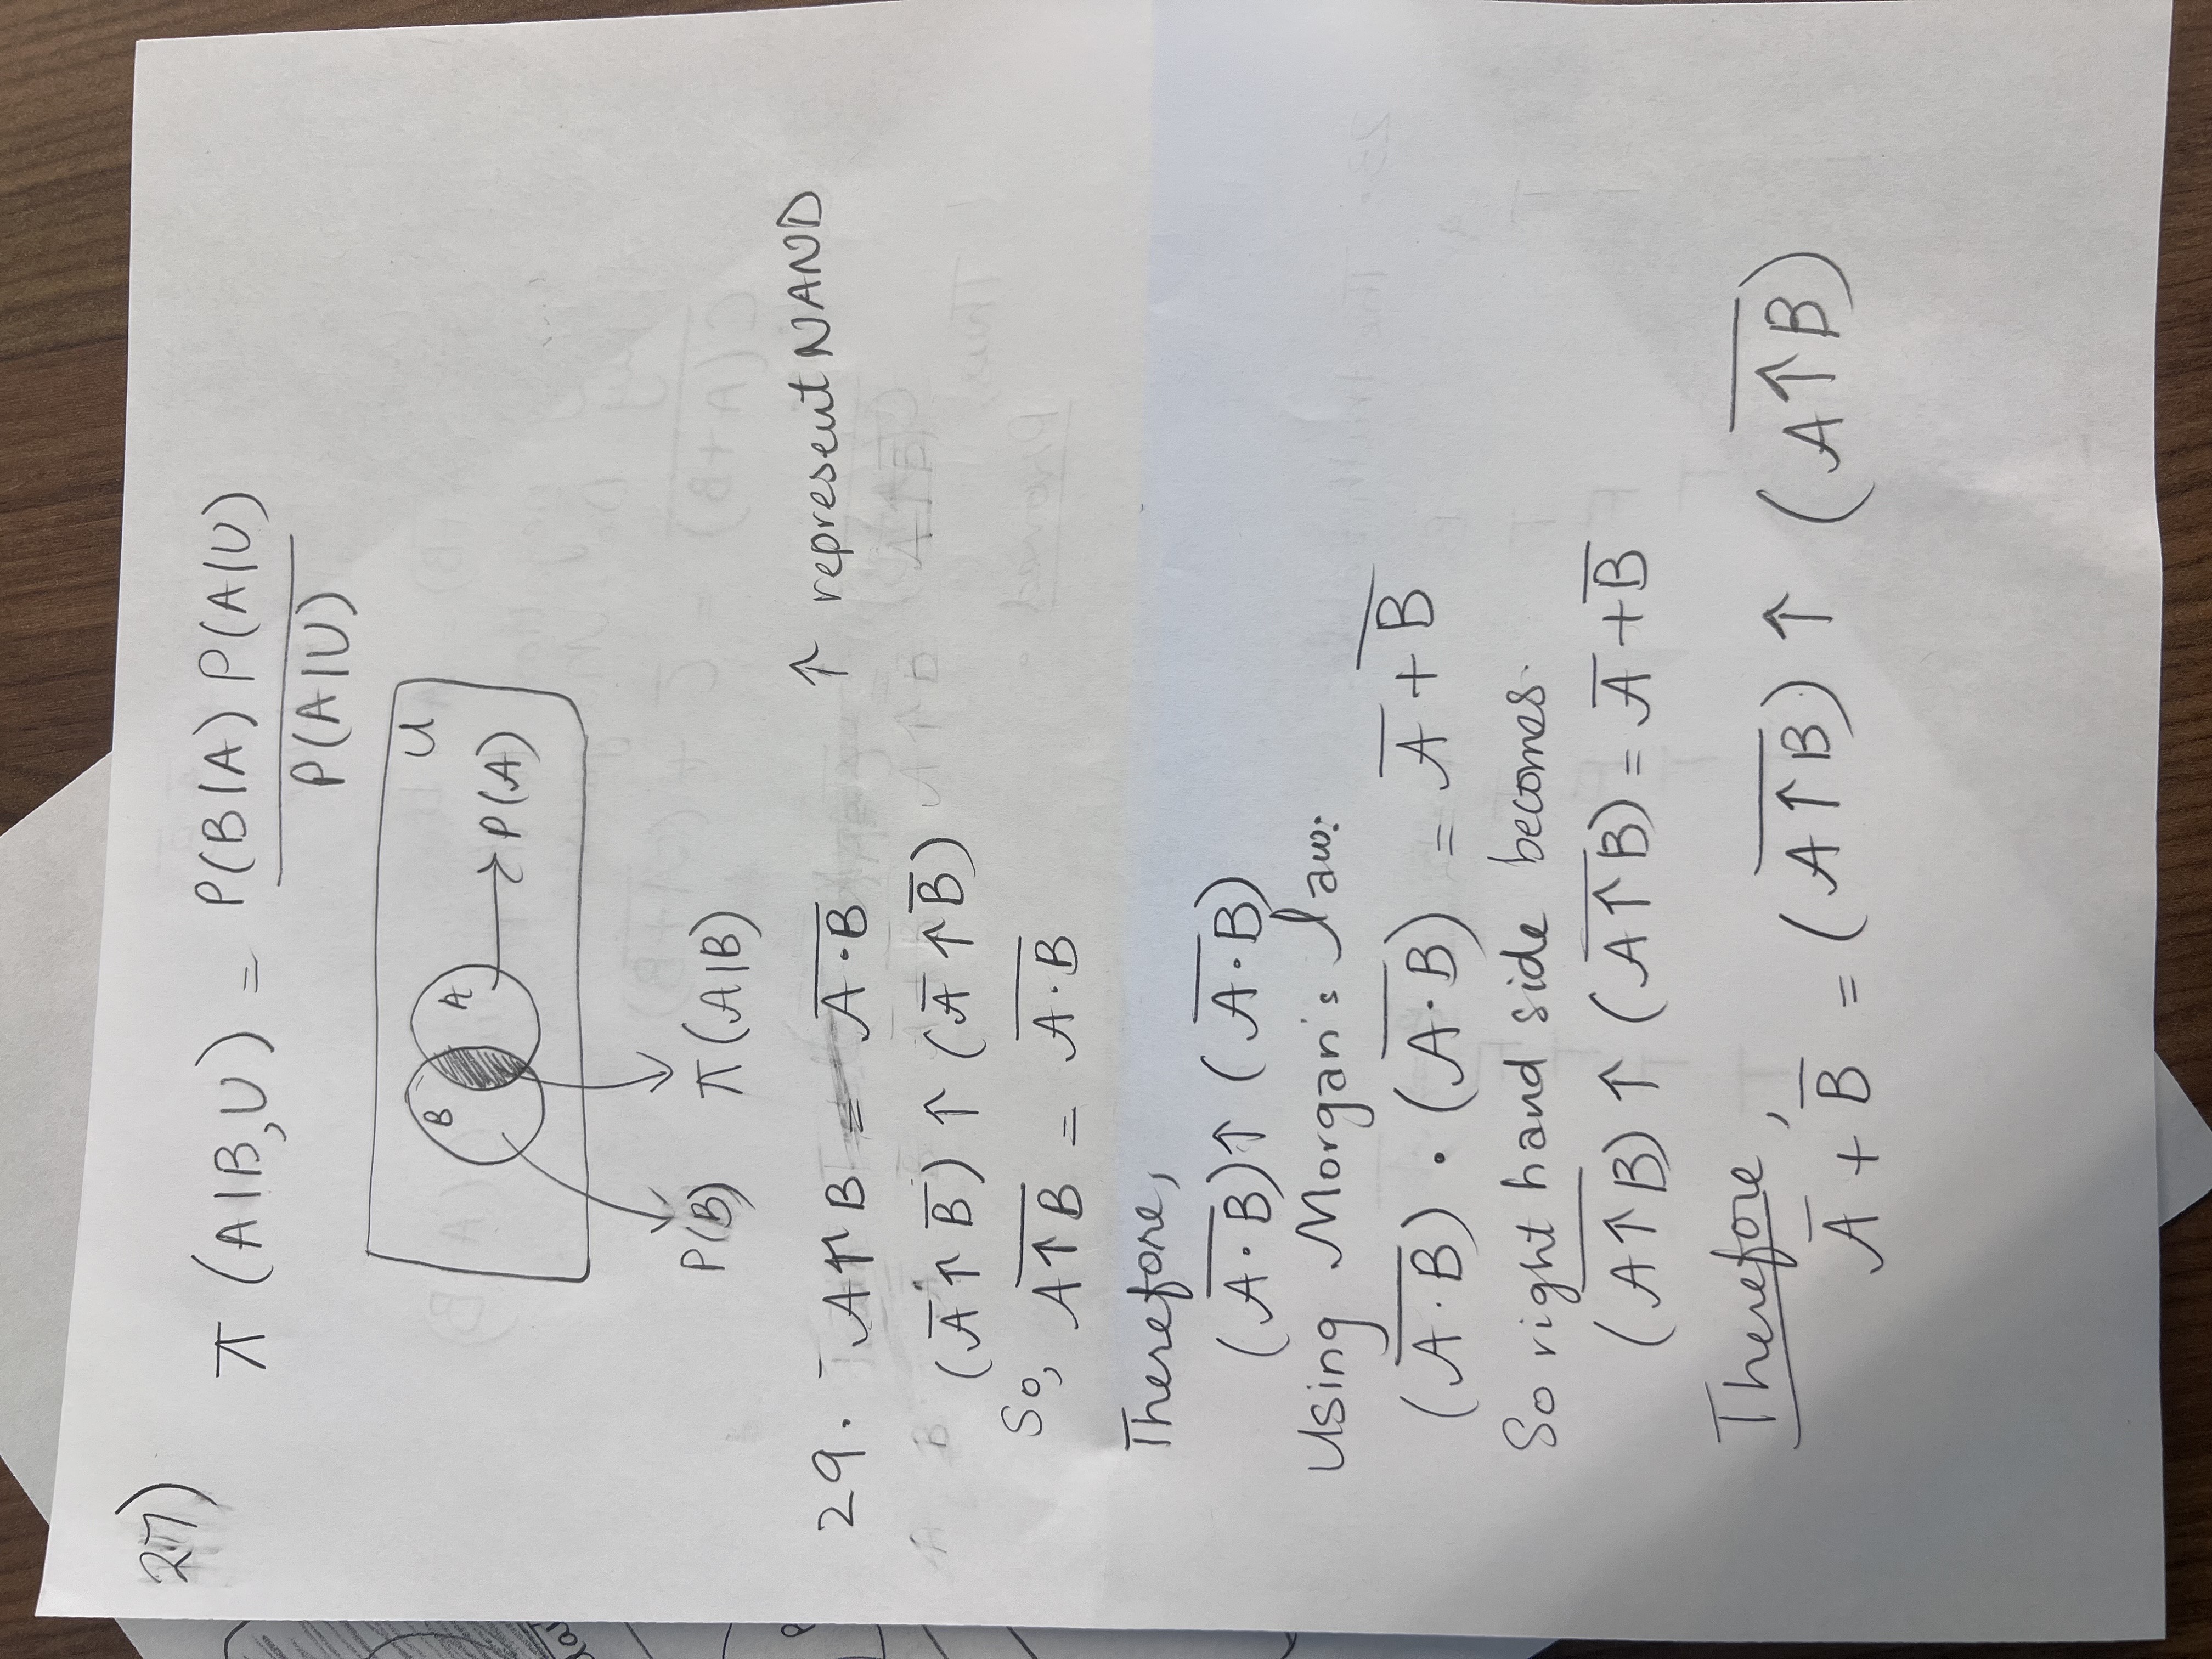 27)
π (A|B,U) = P(B|A) P(A|U)
P(A|U)
U
B A
→ P(A)
P(B) π(A|B)
29. A↑B = A̅·̅B̅ ↑ represent NAND
(A̅ ↑ B̅) ↑ (A̅ ↑ B̅)
So, A̅↑̅B̅ = A̅·̅B̅
Therefore,
(A̅·̅B̅) ↑ (A̅·̅B̅)
Using Morgan's law:
(A̅·̅B̅) · (A̅·̅B̅) = A̅ + B̅
So right hand side becomes.
(A̅↑̅B̅) ↑ (A̅↑̅B̅) = A̅ + B̅
Therefore,
A̅ + B̅ = (A̅↑̅B̅) ↑ (A̅↑̅B̅)